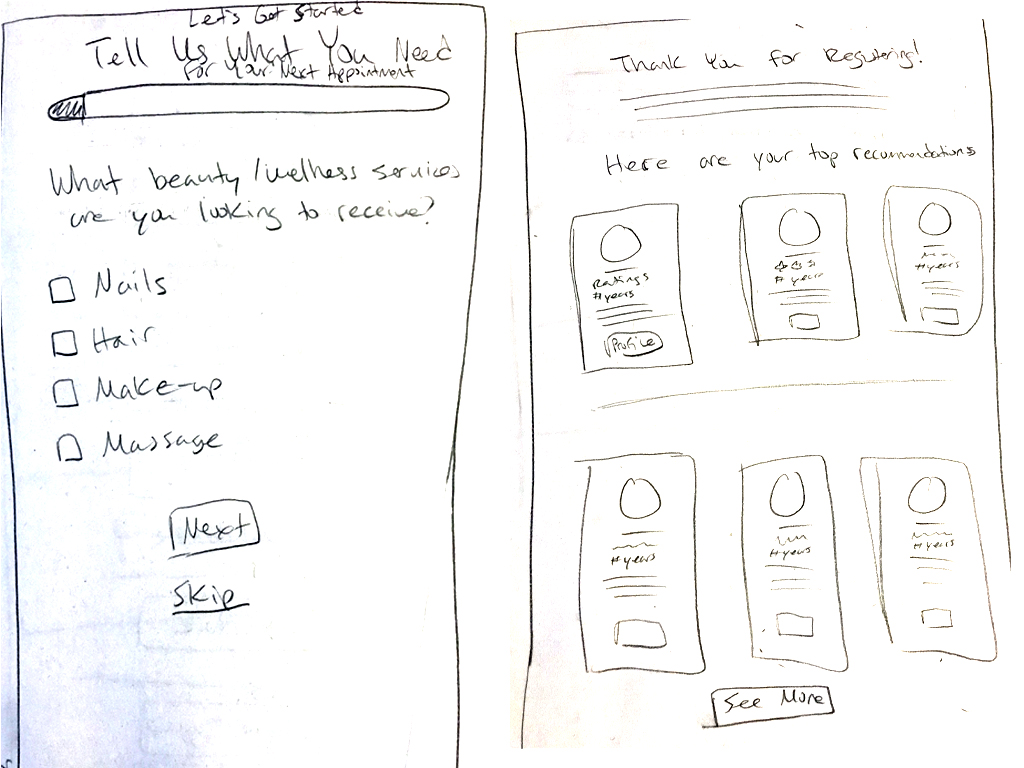 Let's Get Started
Tell Us What You Need
For Your Next Appointment
What beauty/wellness services
are you looking to receive?
Nails
Hair
Make-up
Massage
Next
Skip
Thank You for Registering!
Here are your top recommendations
Ratings
# years
Profile
# years
# years
# years
# years
# years
See More